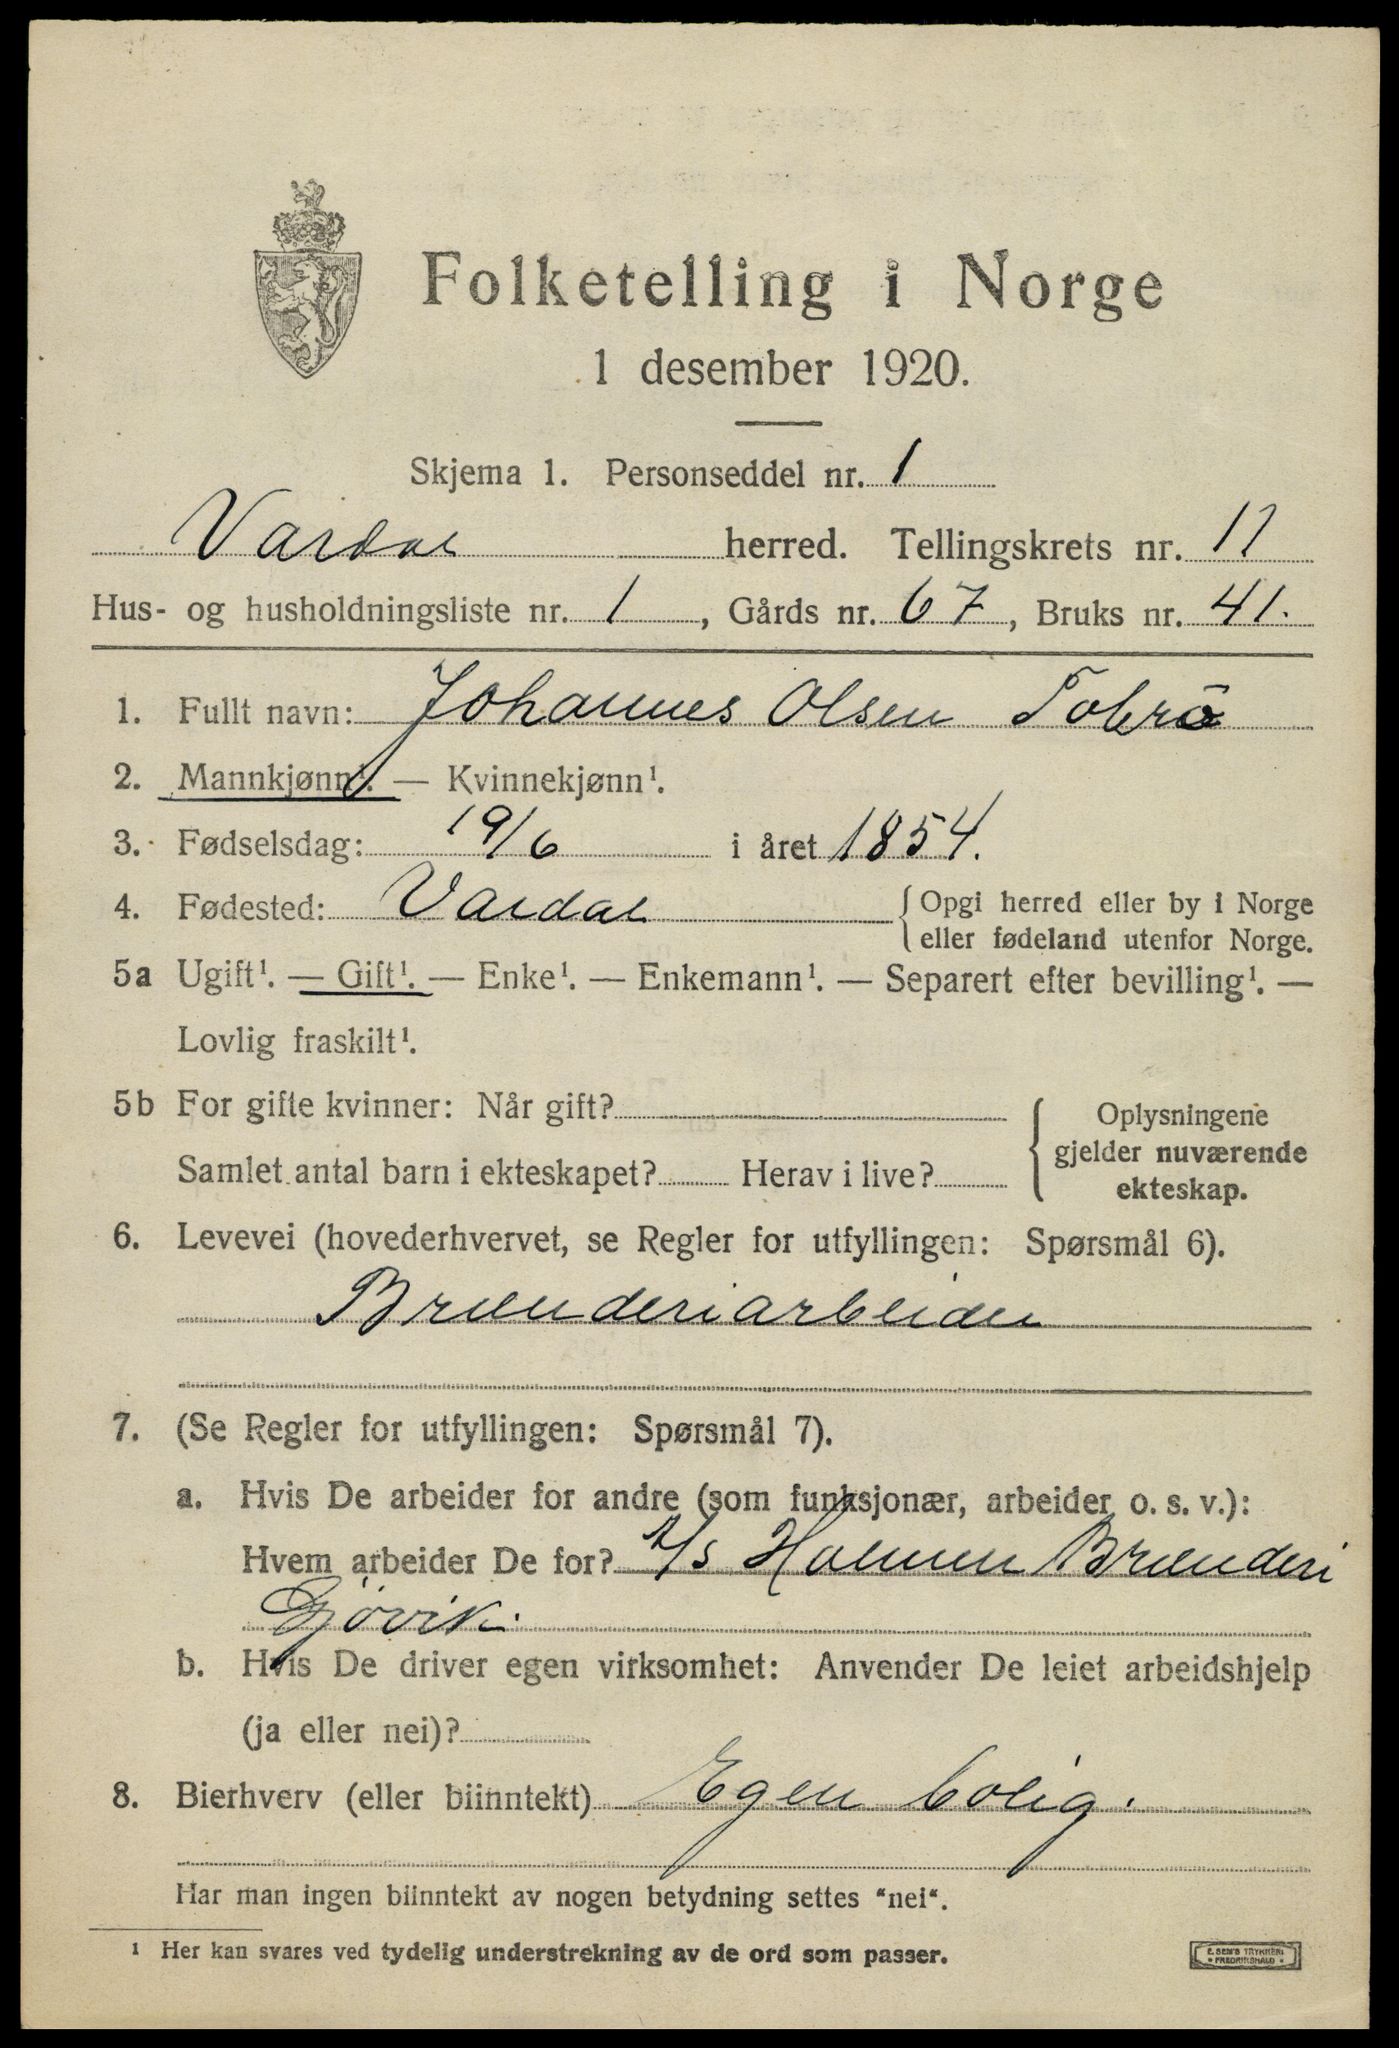 Folketelling i Norge
1 desember 1920.
Skjema 1. Personseddel nr. 1
Vardal herred. Tellingskrets nr. 11
Hus- og husholdningsliste nr. 1, Gårds nr. 67, Bruks nr. 41.
1. Fullt navn: Johannes Olsen
2. Mannkjønn¹. — Kvinnekjønn¹.
3. Fødselsdag: 19/6 i året 1854.
4. Fødested: Vardal {Opgi herred eller by i Norge
eller fødeland utenfor Norge.
5a Ugift¹. — Gift¹. — Enke¹. — Enkemann¹. — Separert efter bevilling¹. —
Lovlig fraskilt¹.
5b For gifte kvinner: Når gift?
Samlet antal barn i ekteskapet? Herav i live?
{Oplysningene
gjelder nuværende
ekteskap.
6. Levevei (hovederhvervet, se Regler for utfyllingen: Spørsmål 6).
Brænderiarbeider
7. (Se Regler for utfyllingen: Spørsmål 7).
a. Hvis De arbeider for andre (som funksjonær, arbeider o. s. v.):
Hvem arbeider De for? A/S Holmen Brænderi
Gjøvik.
b. Hvis De driver egen virksomhet: Anvender De leiet arbeidshjelp
(ja eller nei)?
8. Bierhverv (eller biinntekt) Egen bolig.
Har man ingen biinntekt av nogen betydning settes "nei".
¹ Her kan svares ved tydelig understrekning av de ord som passer.
E. SEM'S TRYKKERI
FREDRIKSHALD